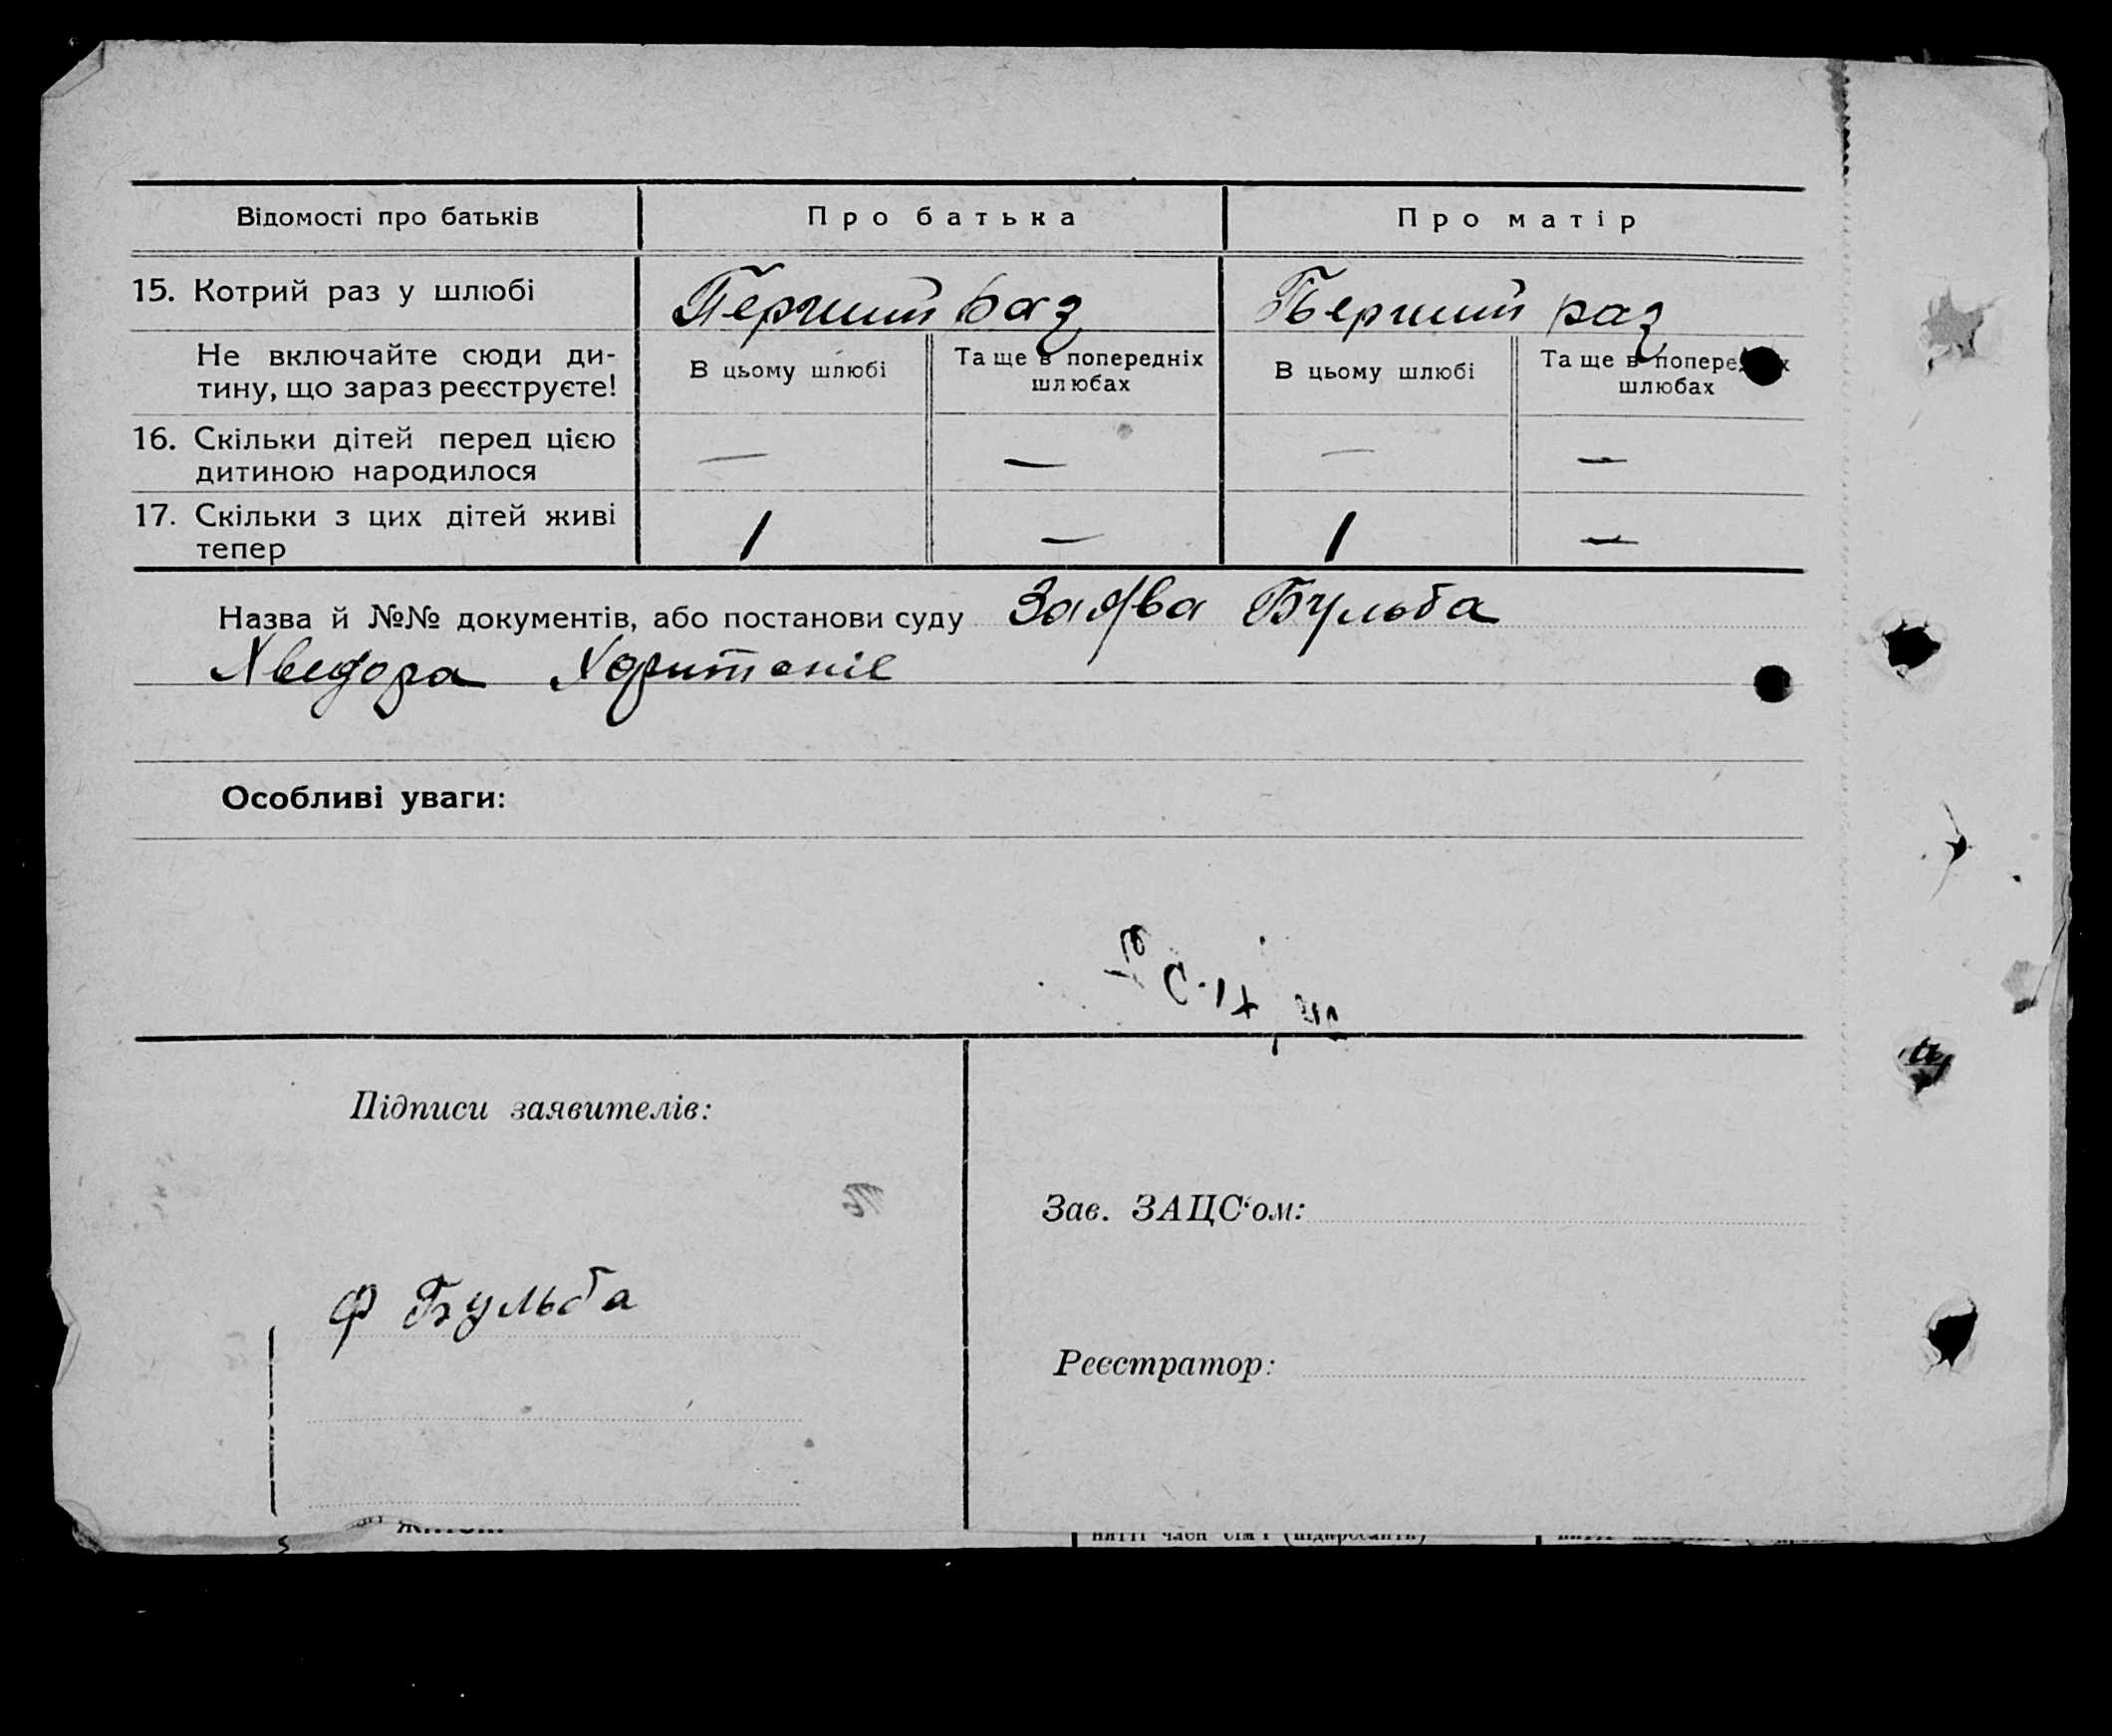 Відомості про батьків Про батька Про матір
15. Котрий раз у шлюбі Перший раз Перший раз
Не включайте сюди ди-
тину, що зараз реєструєте!
В цьому шлюбі Та ще в попередніх
шлюбах
В цьому шлюбі Та ще в
шлюбах
16. Скільки дітей перед цією
дитиною народилося — — — —
17. Скільки з цих дітей живі
тепер 1 — 1 —
Назва й №№ документів, або постанови суду Заява Бульба
Хведора
Особливі уваги:
Підписи заявителів:
Ф Бульба
Зав. ЗАЦС‘ом:
Реєстратор: